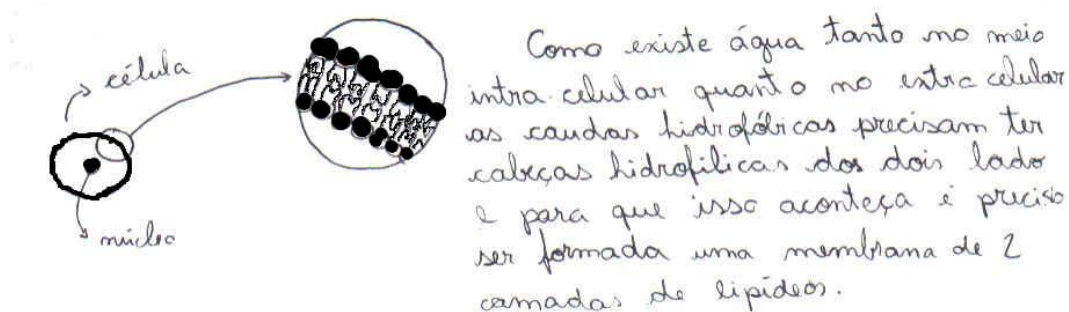 célula
núcleo
Como existe água tanto no meio
intra-celular quanto no extra celular
as caudas hidrofóbicas precisam ter
cabeças hidrofílicas dos dois lado
e para que isso aconteça é preciso
ser formada uma membrana de 2
camadas de lipídeos.